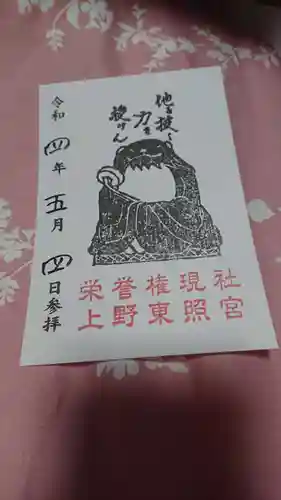 他を抜く
力を
授けん
令和四年五月四日参拝
栄誉権現社
上野東照宮